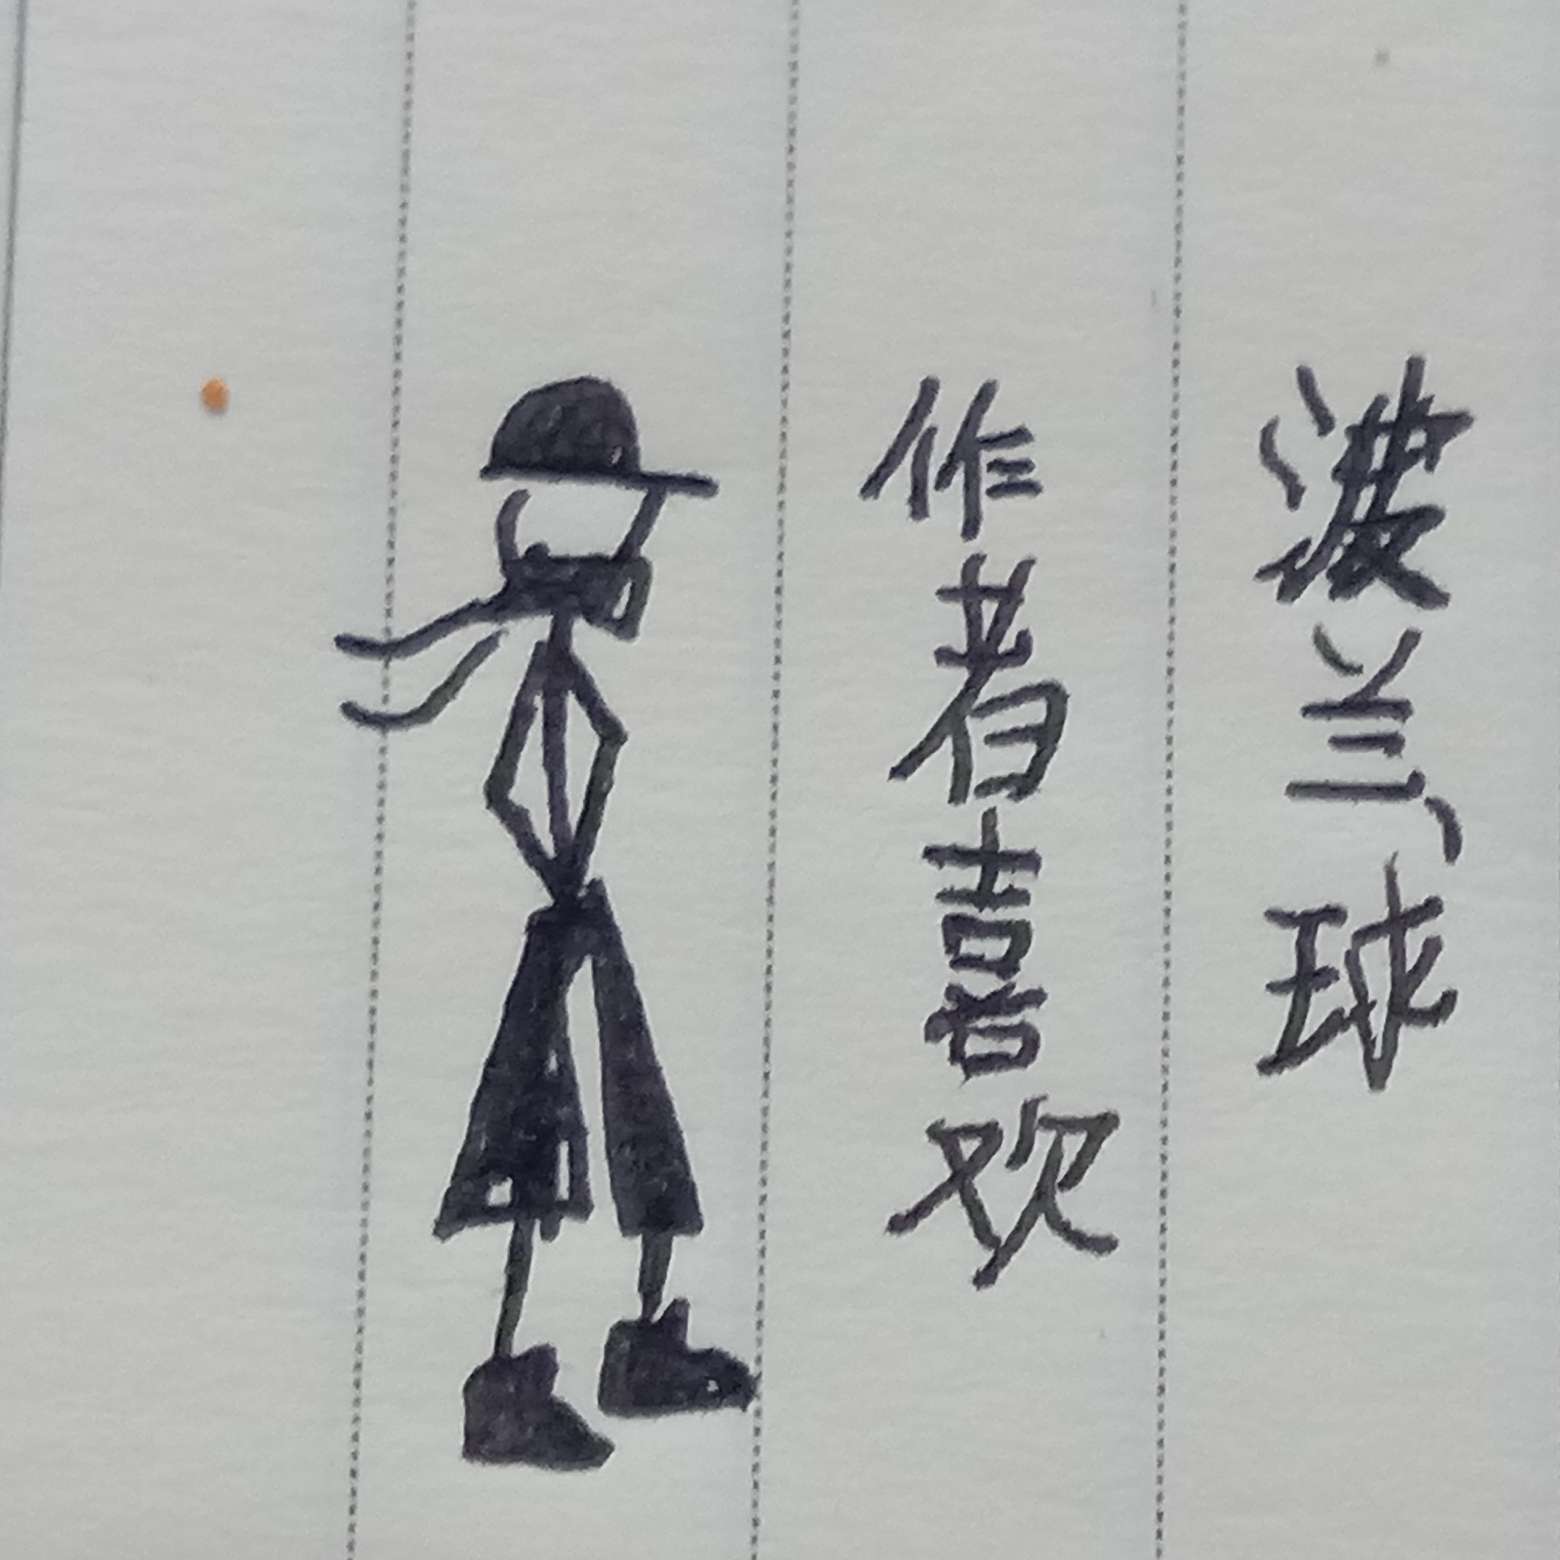 波兰球
作者喜欢